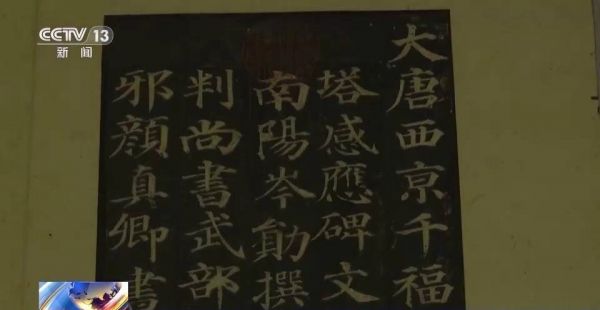 CCTV 13
新闻
大唐西京千福
塔感應碑文
南陽岑勛撰
判尚書武部
邪顏真卿書